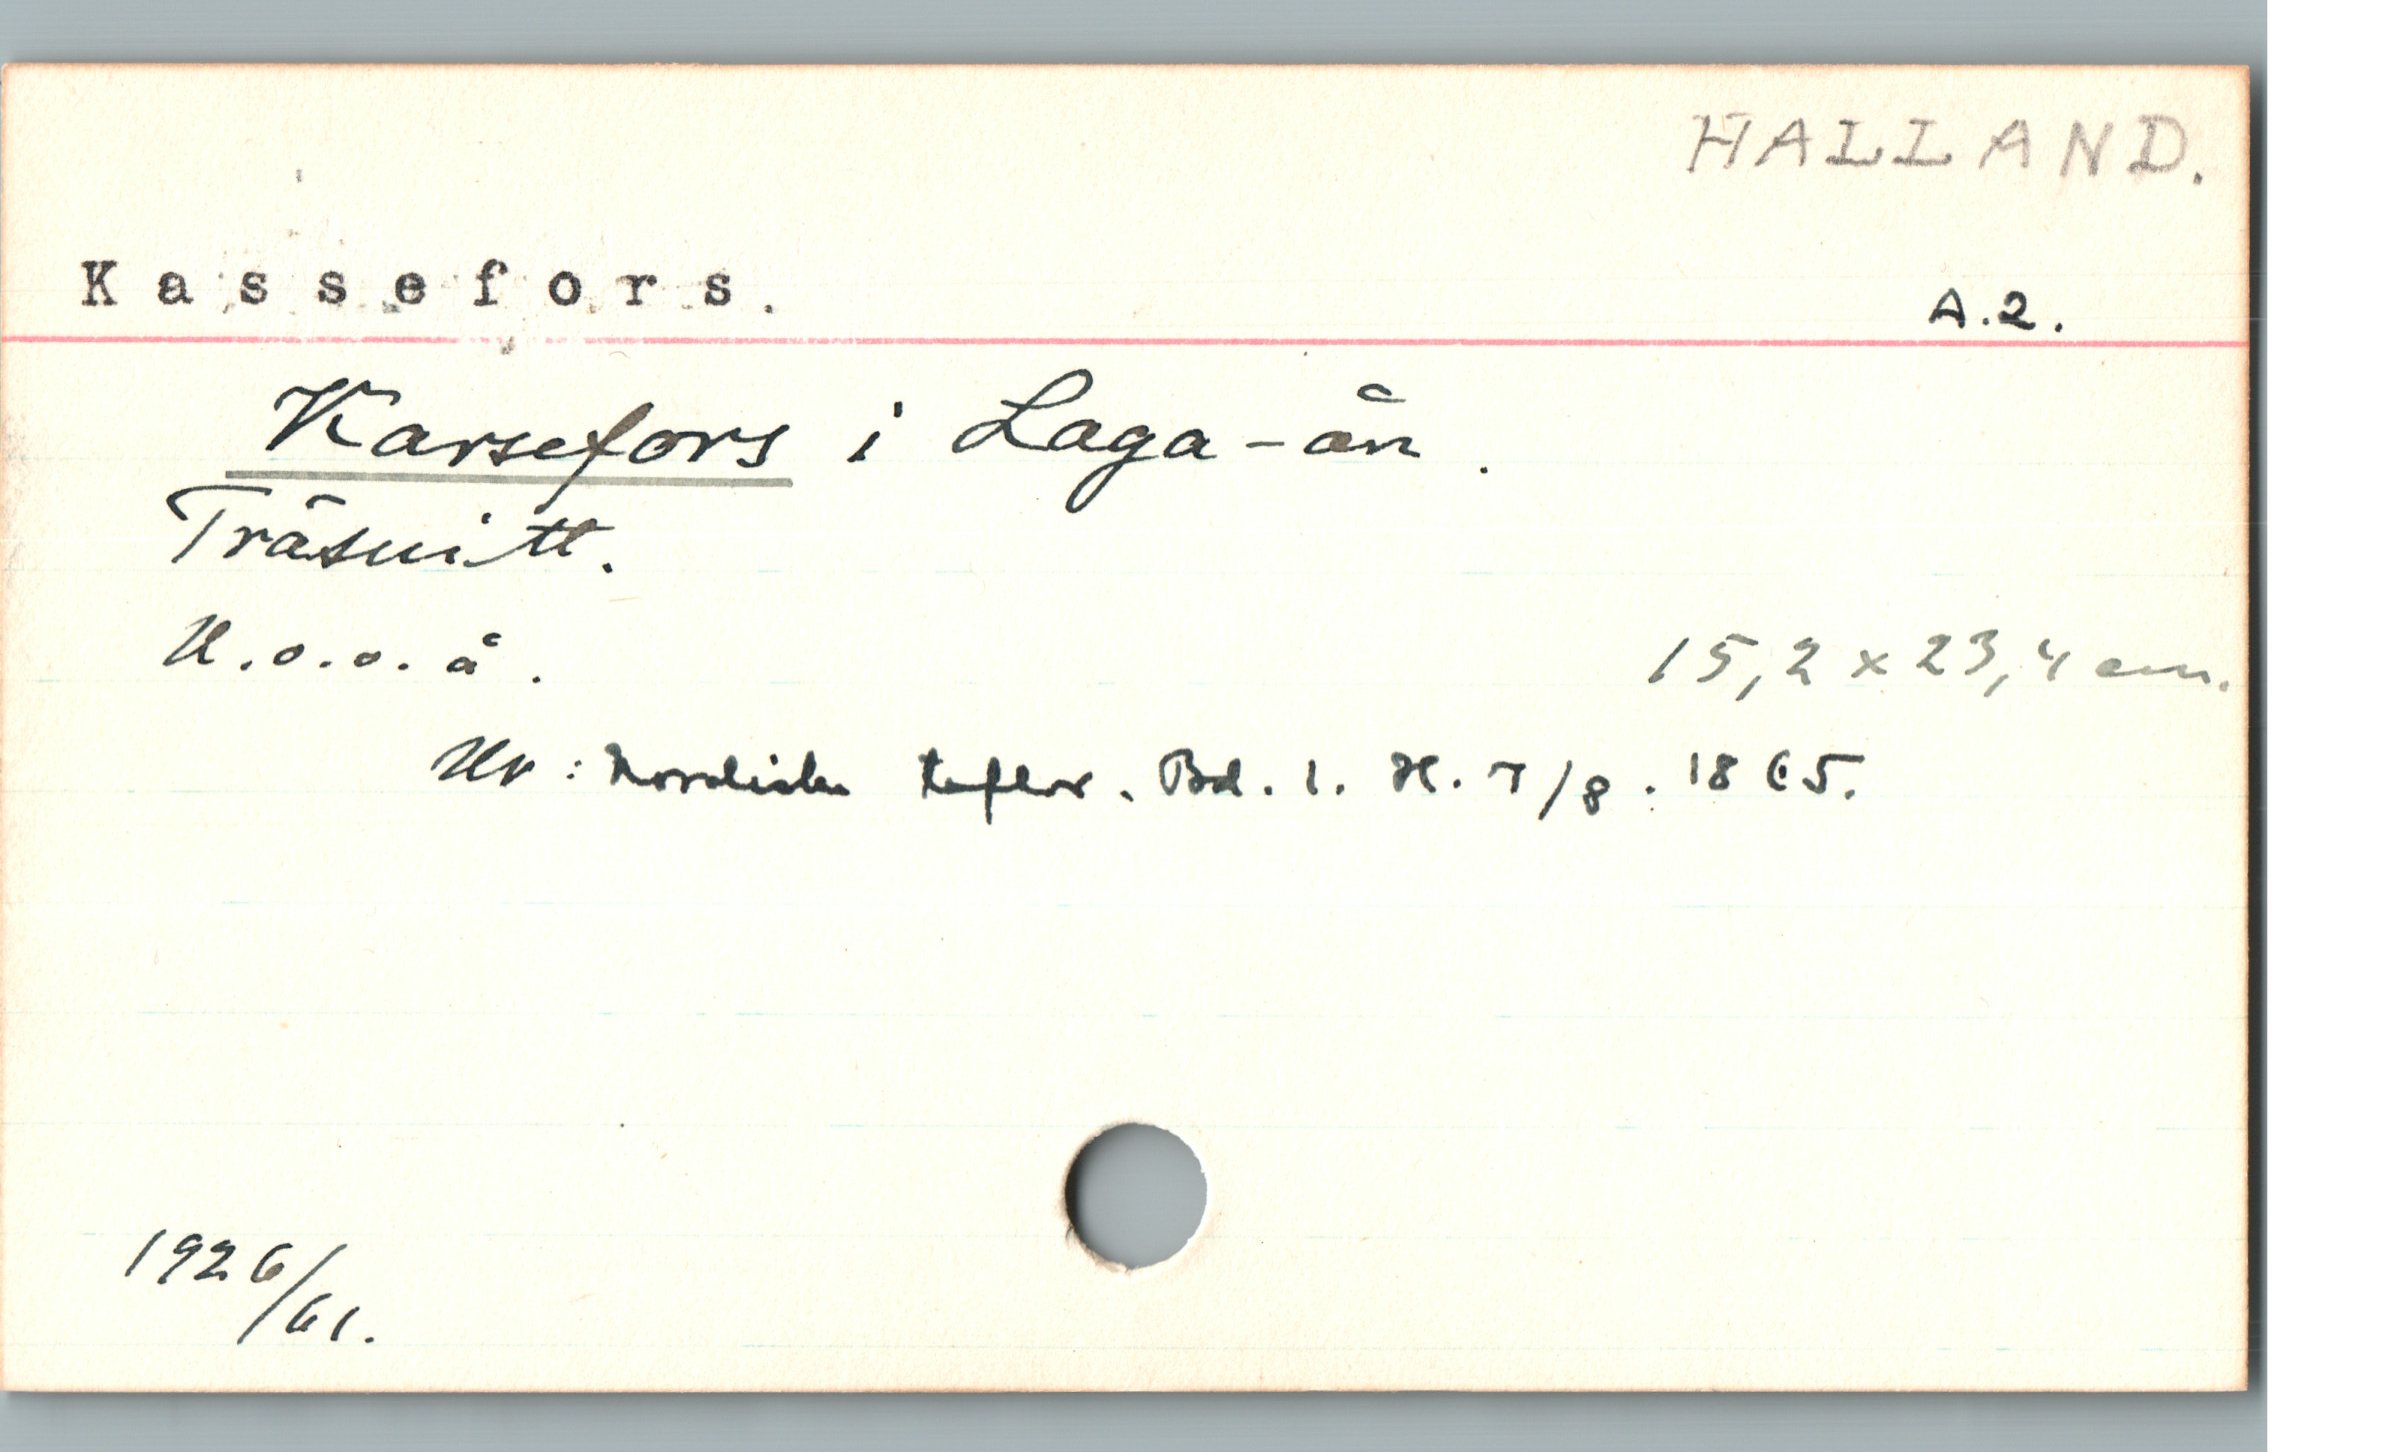 HALLAND.
Kassefors.
A.2.
Karsefors i Laga-ån.
Träsnitt.
U.o.o.å.
15,2 x 23,4 cm.
Ur: Nordiska taflor. Bd. 1. H. 7/8. 1865.
1926/61.